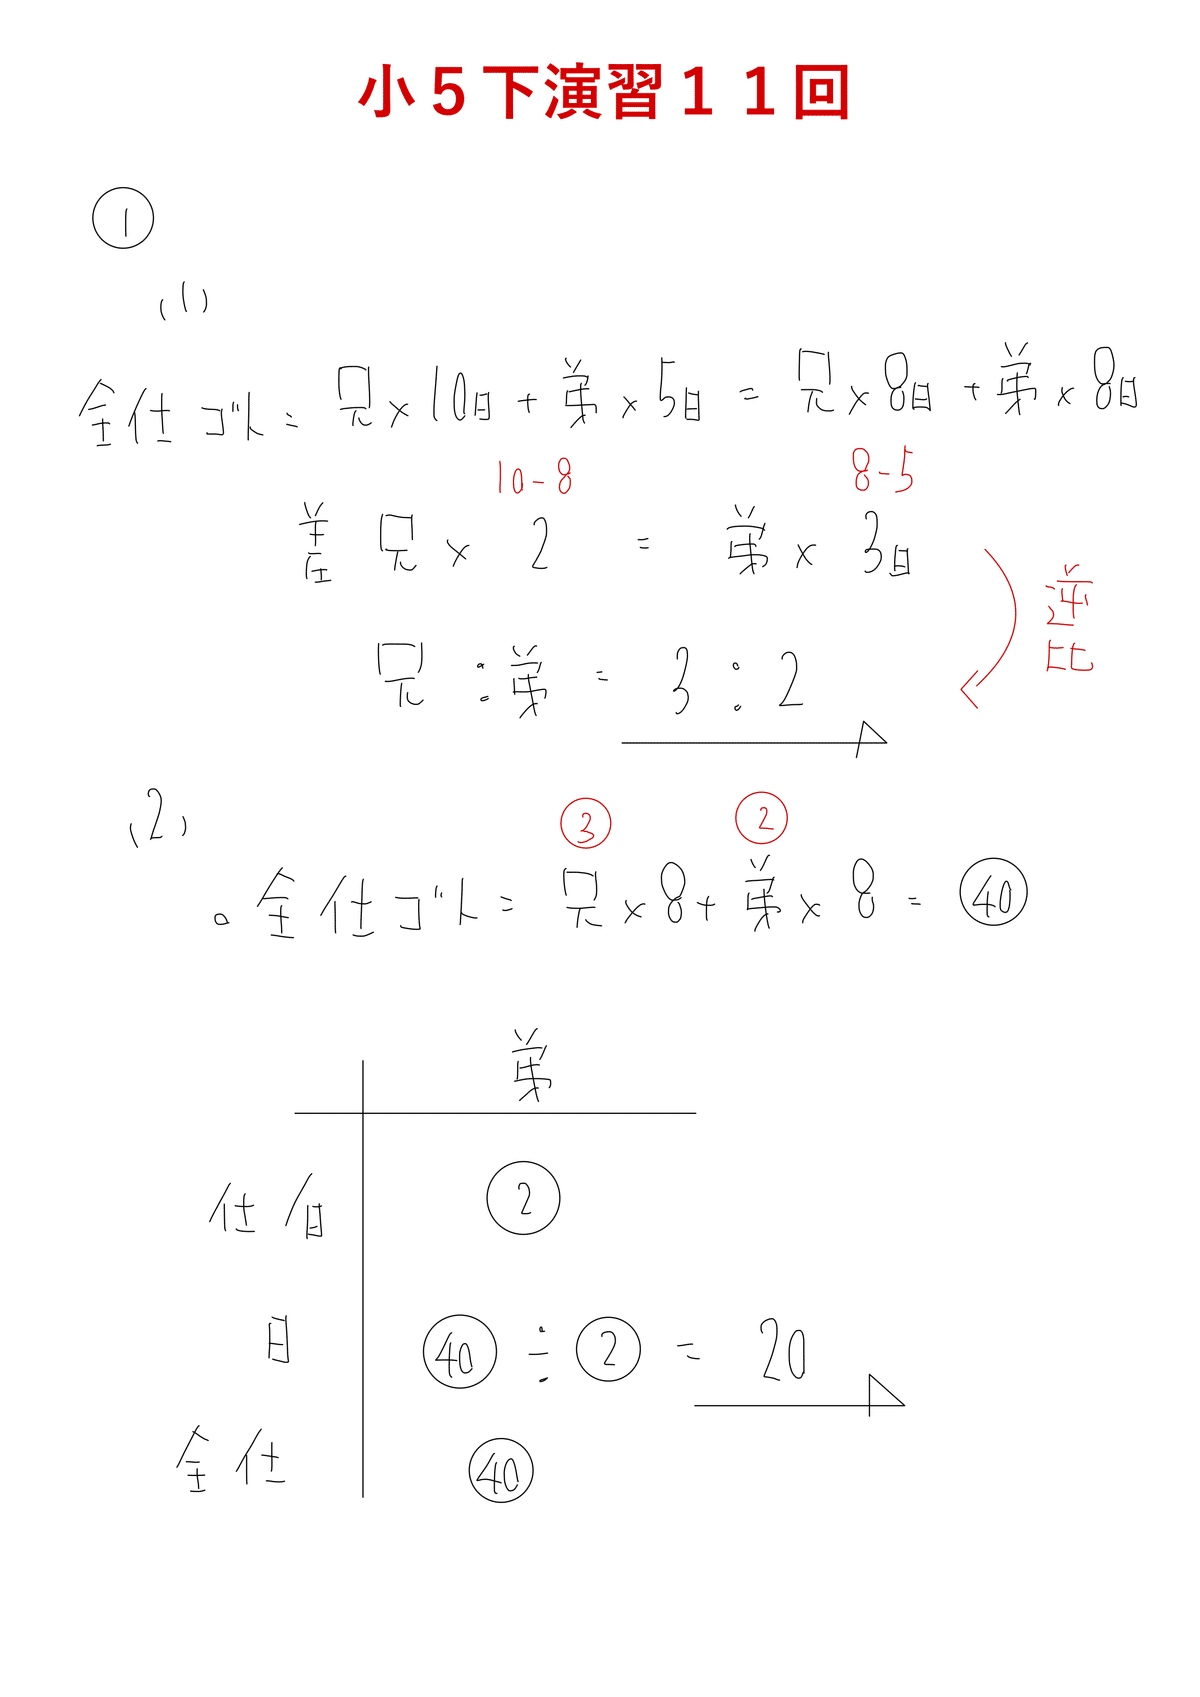 小5下演習11回
①
(1)
全仕ゴト = 兄×10日 + 弟×5日 = 兄×8日 + 弟×8日
10-8 8-5
差 兄 × 2 = 弟 × 3日
逆比
兄 : 弟 = 3 : 2
(2)
③ ②
。全仕ゴト = 兄×8+弟×8 = ㊵
弟
仕/日 ②
日 ㊵ ÷ ② = 20
全仕 ㊵